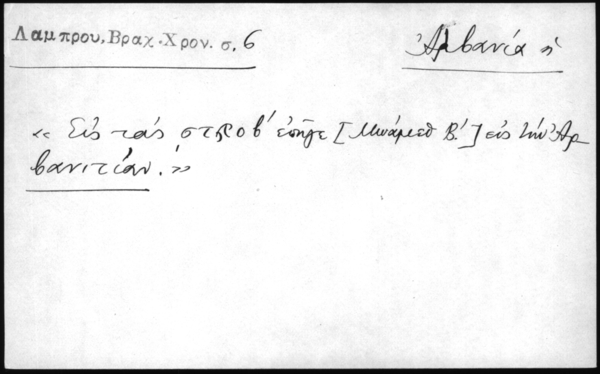 Λαμπρου, Βραχ. Χρον. σ. 6
Ἀλβανία ἡ
« Εἰς τάς ͵ςτλοβ´ ἐπῆγε [Μωάμεθ Β´.] εἰς τήν Ἀρ
βανιτίαν. »